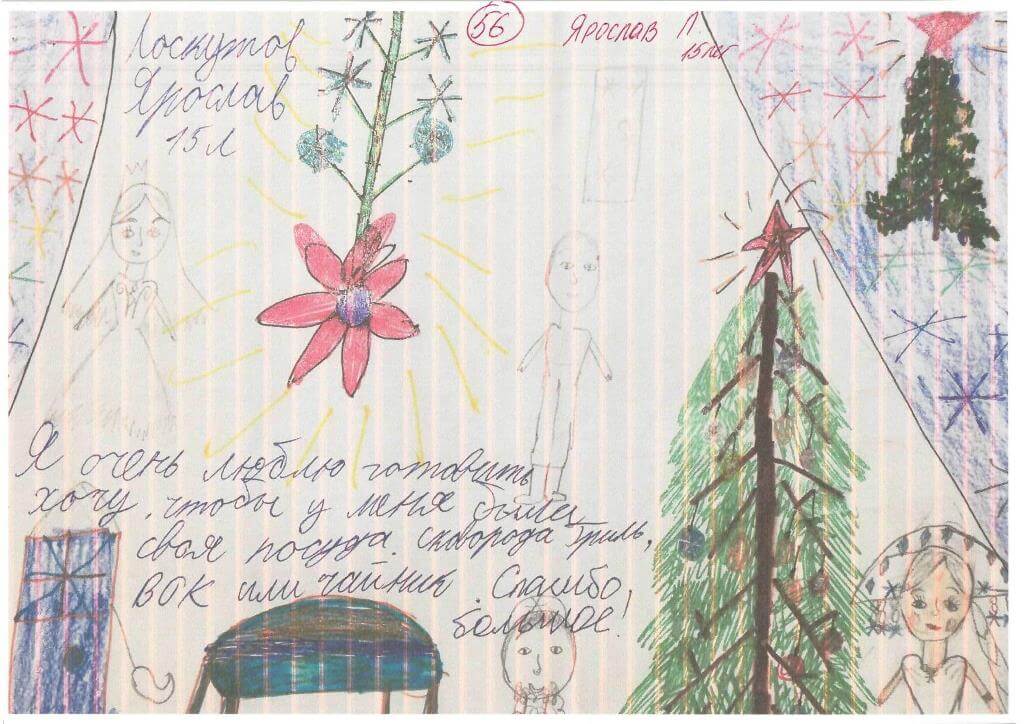 Лоскутов
Ярослав
15 л
56
Ярослав Л
15 лет
Я очень люблю готовить
хочу, чтобы у меня была
своя посуда. Сковорода гриль,
ВОК или чайник. Спасибо
большое!